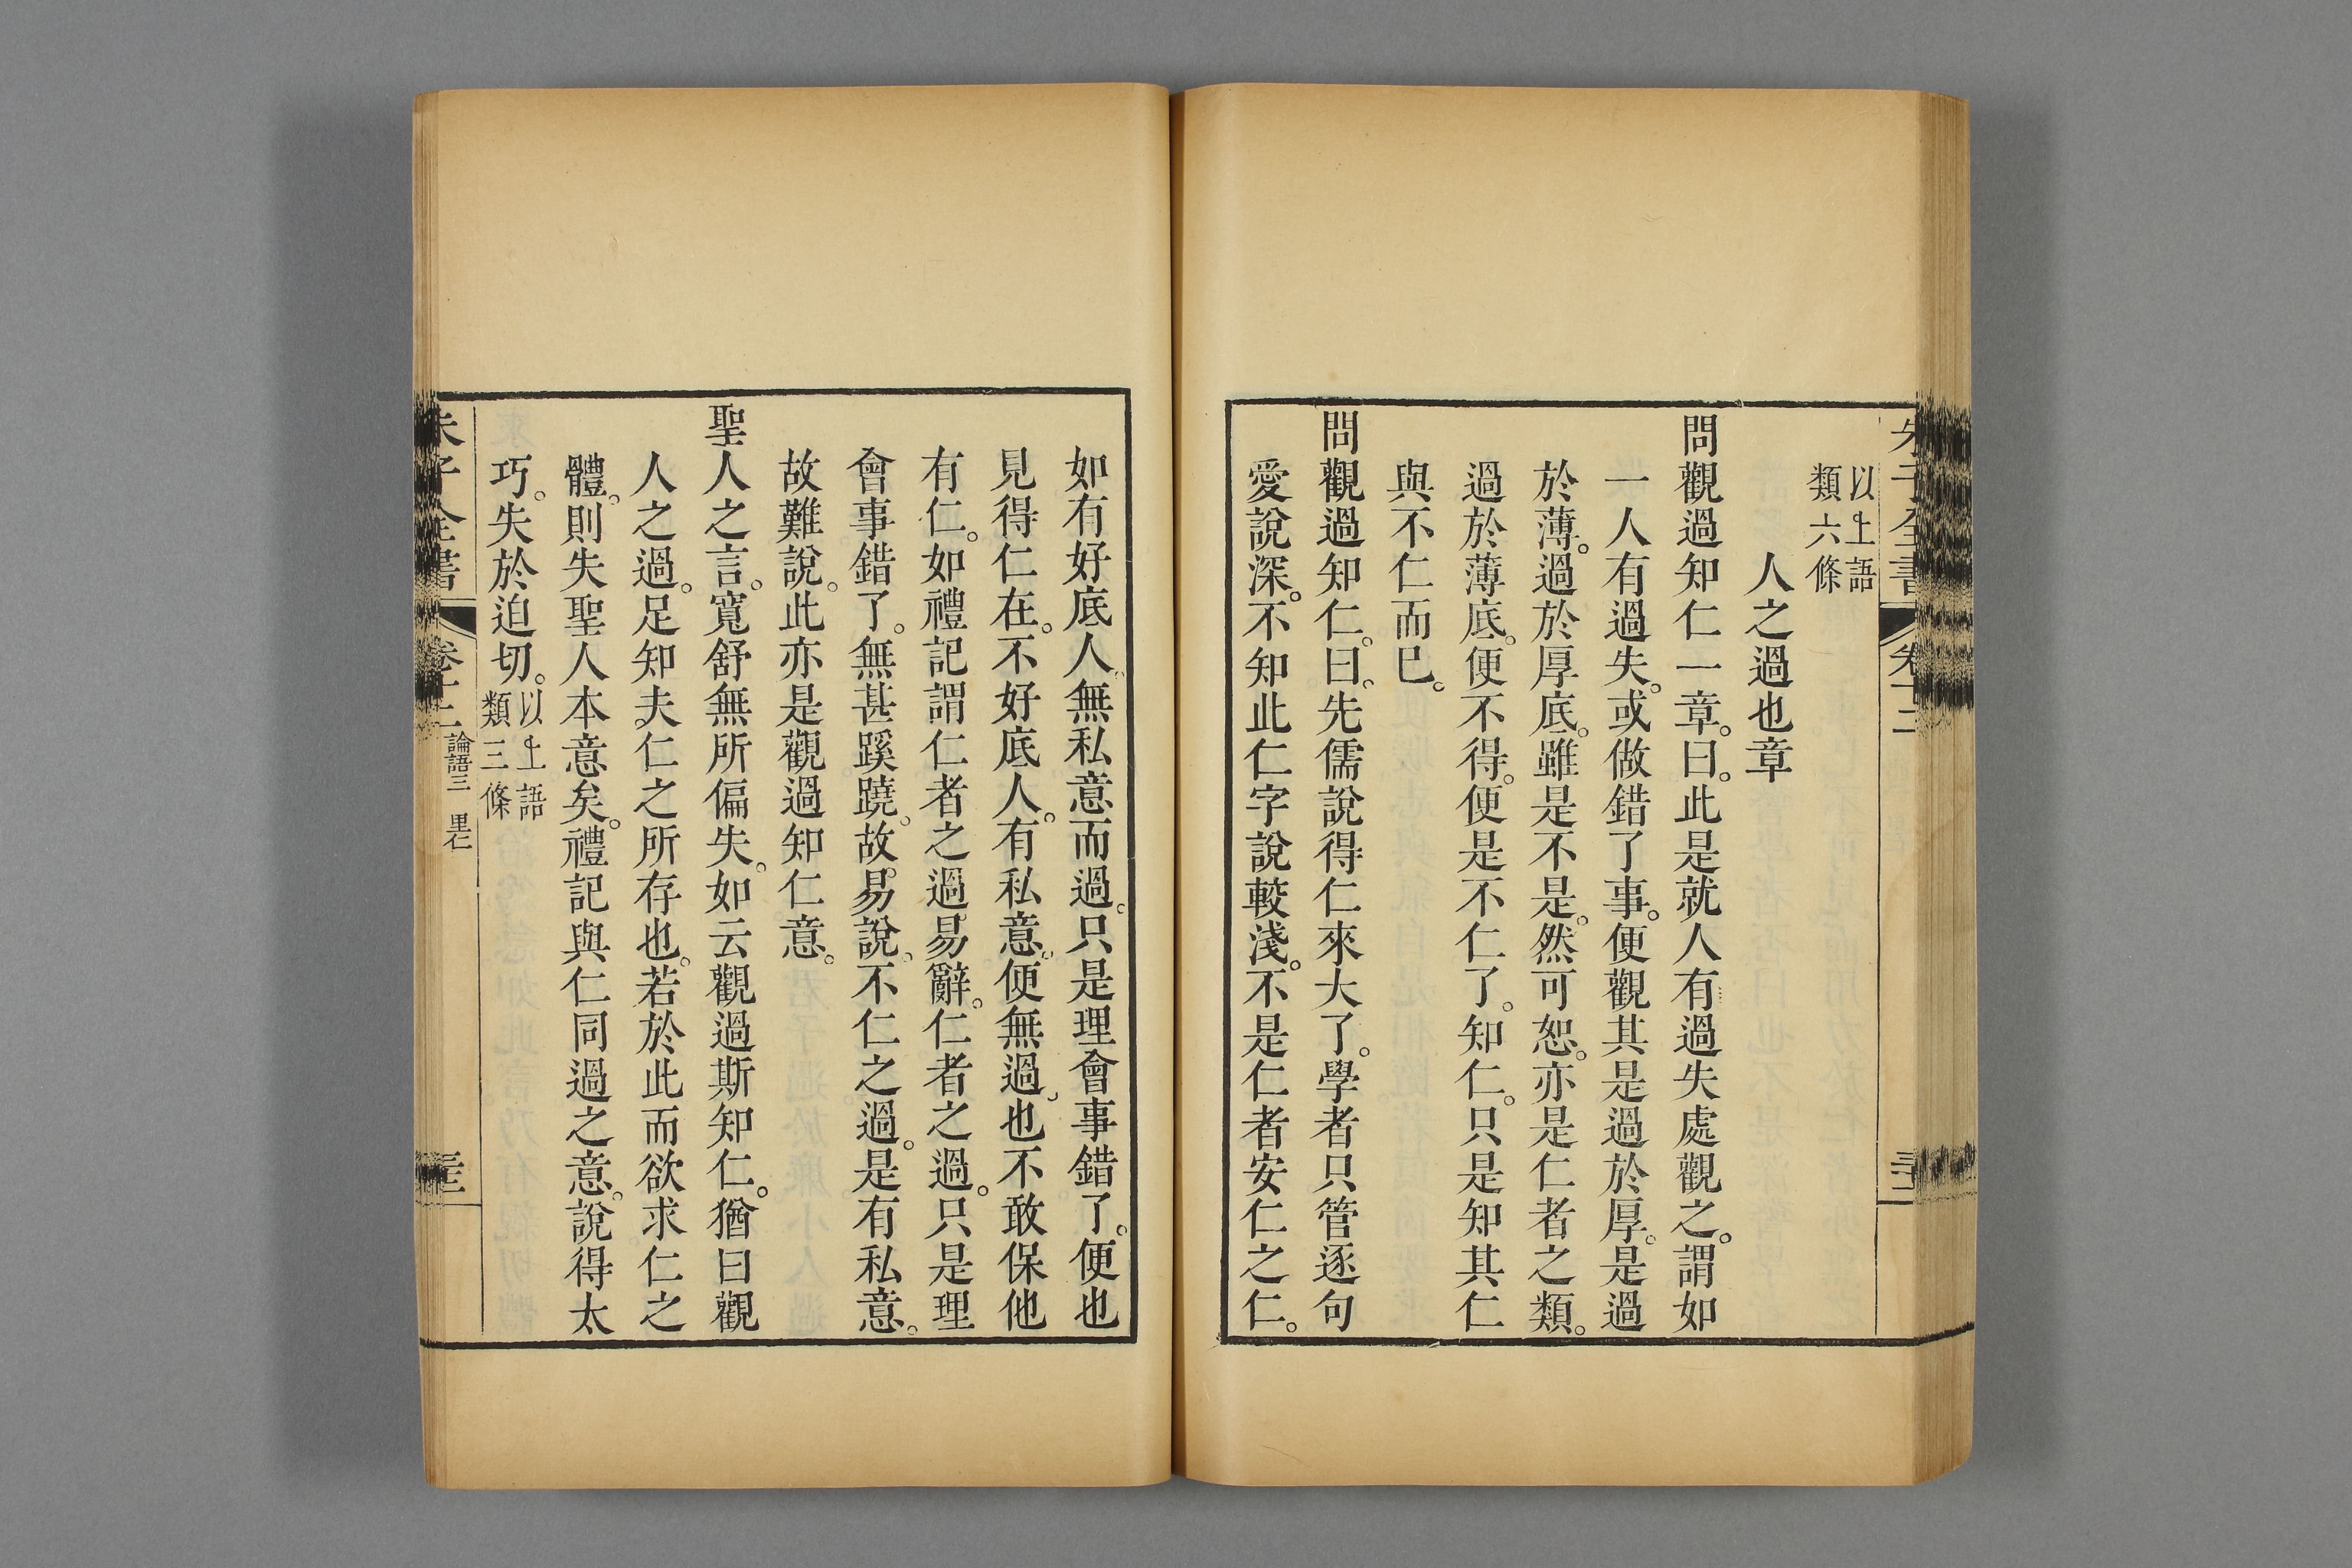 朱子全書 卷十二
以上語
類六條
人之過也章
問觀過知仁一章。曰。此是就人有過失處觀之。謂如
一人有過失。或做錯了事。便觀其是過於厚。是過
於薄。過於厚底。雖是不是。然可恕。亦是仁者之類。
過於薄底。便不得。便是不仁了。知仁。只是知其仁
與不仁而已。
問觀過知仁。曰。先儒說得仁來大了。學者只管逐句
愛說深。不知此仁字說較淺。不是仁者安仁之仁。
如有好底人。無私意而過。只是理會事錯了。便也
見得仁在。不好底人。有私意。便無過。也不敢保他
有仁。如禮記謂仁者之過易辭。仁者之過。只是理
會事錯了。無甚蹊蹺。故易說。不仁之過。是有私意。
故難說。此亦是觀過知仁意。
聖人之言。寬舒無所偏失。如云觀過斯知仁。猶曰觀
人之過。足知夫仁之所存也。若於此而欲求仁之
體。則失聖人本意矣。禮記與仁同過之意。說得太
巧。失於迫切。
以上語
類三條
朱子全書 卷十二 論語三 里仁